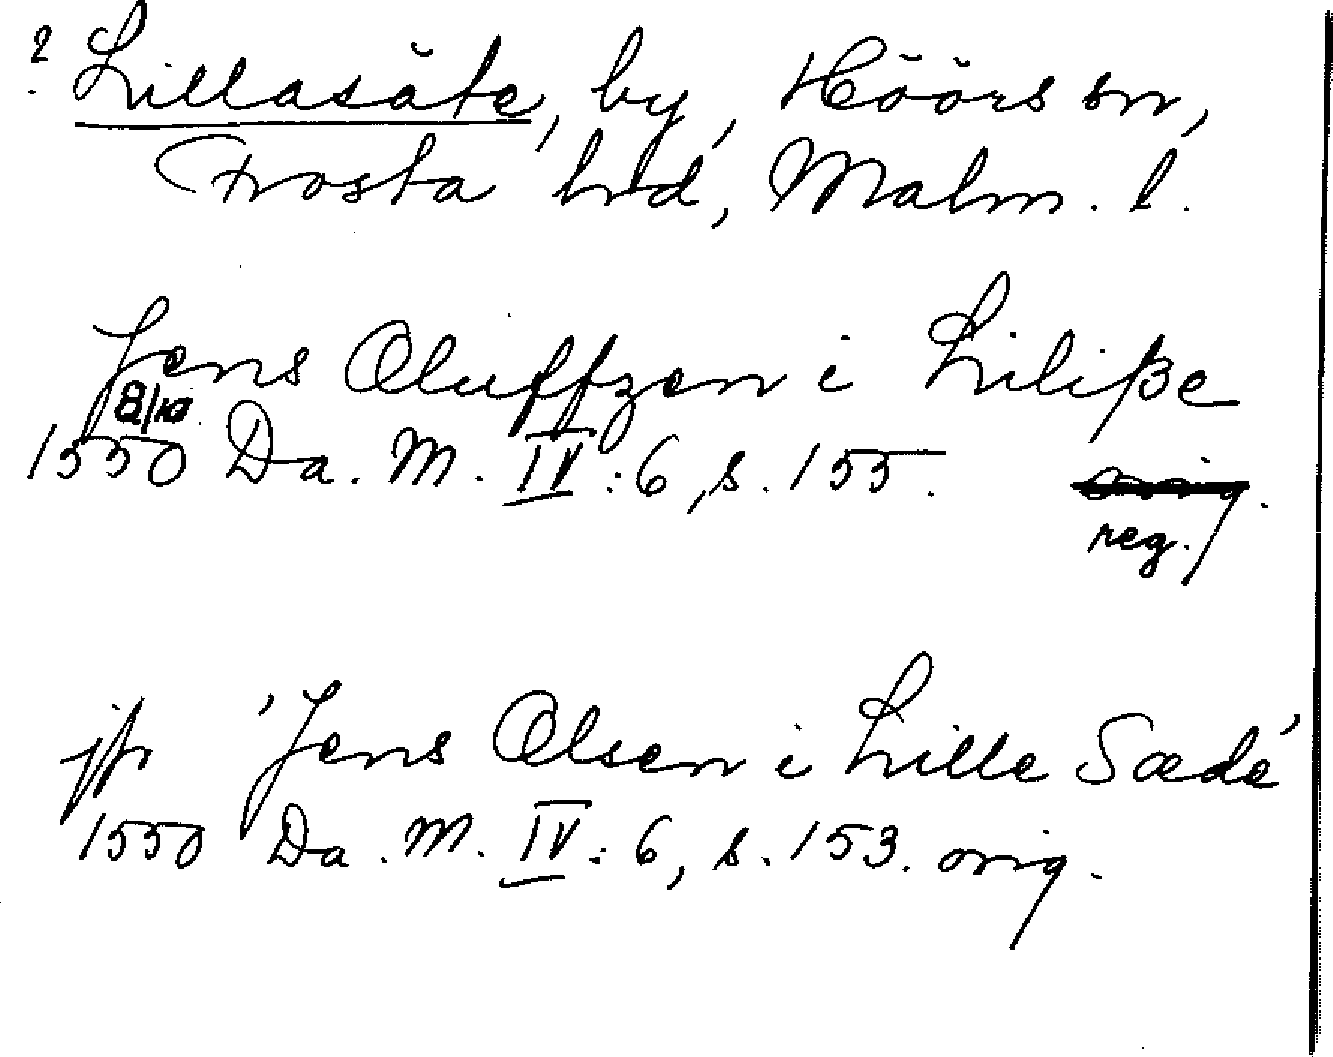 ? Lillasäte, by, Höörs sn,
Frosta hrd, Malm. l.
Jens Oluffzen i Liliße
8/10
1550 Da. M. IV:6, s. 155. orig.
reg.
jfr 'Jens Olsen i Lille Sæde'
1550 Da. M. IV:6, s. 153. orig.